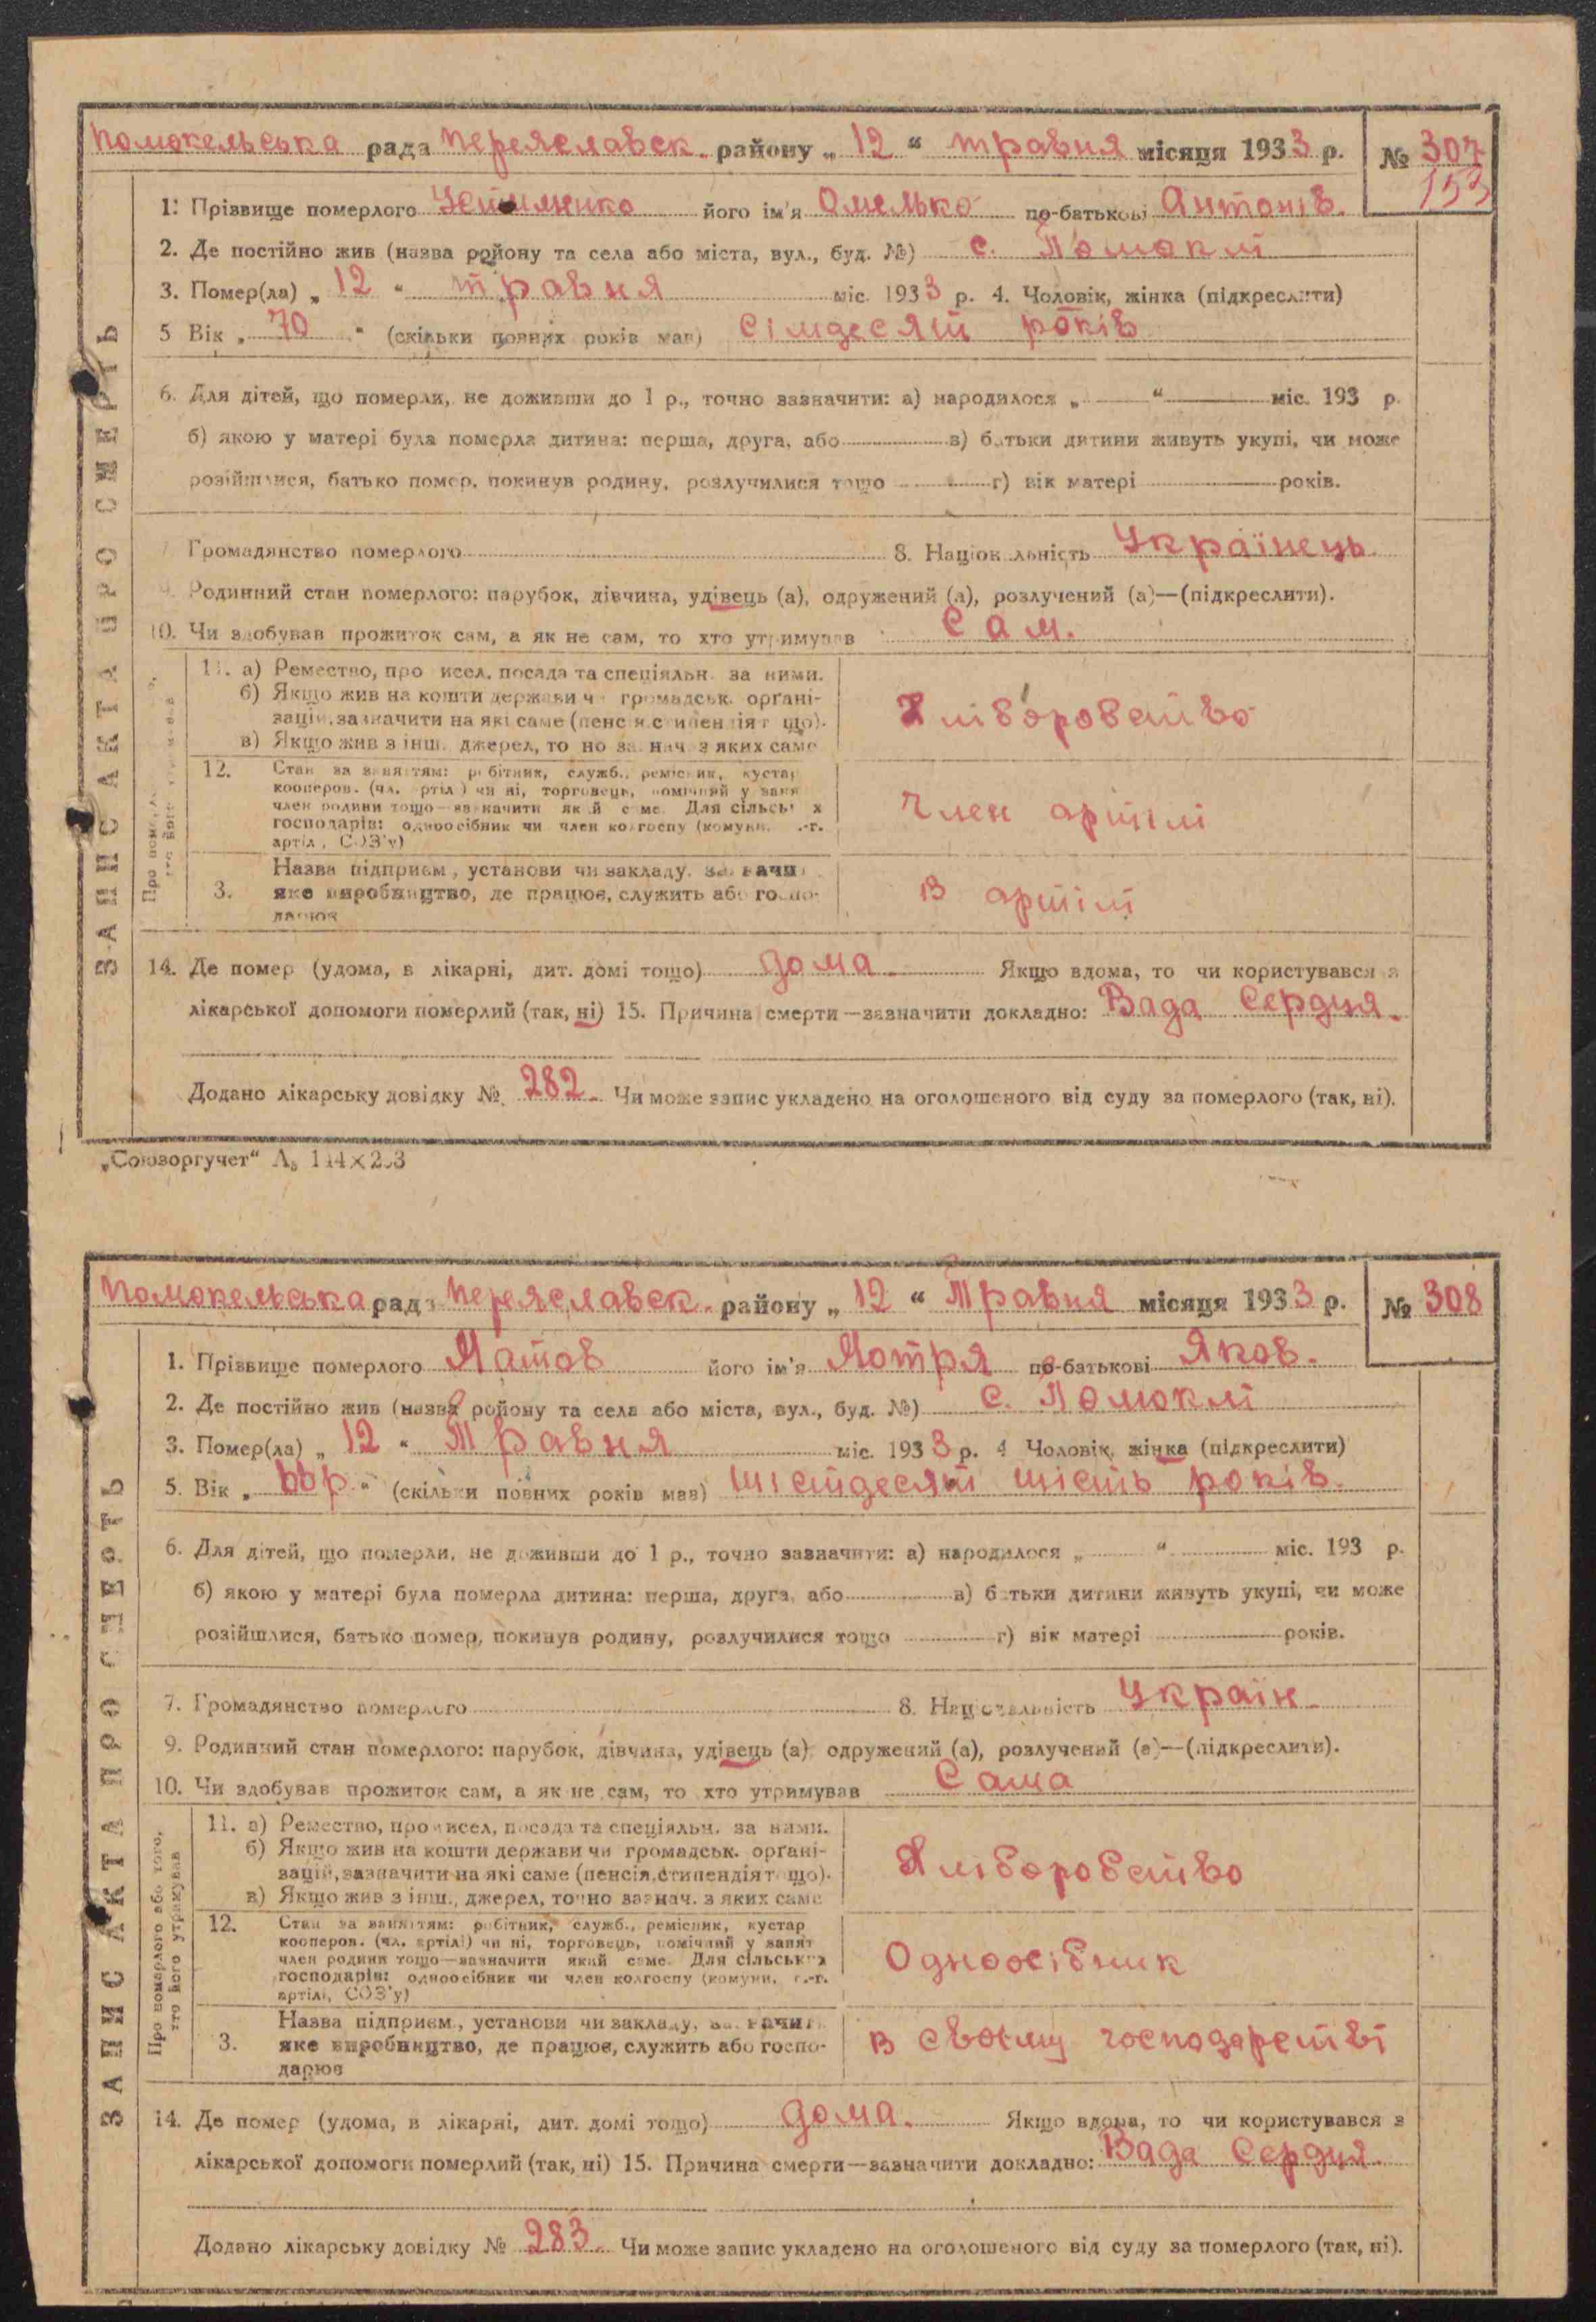 Помокельська рада Переяславск. району „ 12 “ травня місяця 1933 р. № 307
153
1. Прізвище померлого його ім'я Омелько по-батькові Антонів.
2. Де постійно жив (назва ройону та села або міста, вул., буд. №) с. Помоклі
3. Помер(ла) „ 12 “ травня міс. 1933 р. 4. Чоловік, жінка (підкреслити)
5 Вік „ 70 “ (скільки повних років мав) сімдесят років
6. Для дітей, що померли, не доживши до 1 р., точно зазначити: а) народилося „ “ міс. 193 р.
б) якою у матері була померла дитина: перша, друга, або в) батьки дитини живуть укупі, чи може
розійшлися, батько помер, покинув родину, розлучилися тощо г) вік матері років.
Громадянство померлого 8. Національність Українець.
9. Родинний стан померлого: парубок, дівчина, удівець (а), одружений (а), розлучений (а)—(підкреслити).
10. Чи здобував прожиток сам, а як не сам, то хто утримував Сам.
11. а) Ремество, промисел, посада та спеціяльн. за ними.
б) Якщо жив на кошти держави чи громадськ. орґані-
зацій, зазначити на які саме (пенсія, стипендія тощо).
в) Якщо жив з інш. джерел, точно зазнач. з яких саме
Хліборобство
12. Стан за заняттям: робітник, служб., ремісник, кустар
кооперов. (чл. артілі) чи ні, торговець, помічний у занят
член родини тощо—зазначити який саме. Для сільських
господарів: одноосібник чи член колгоспу (комуни, с.-г.
артілі, СОЗ'у)
Член артілі
3. Назва підприєм., установи чи закладу, зазначити
яке виробництво, де працює, служить або госпо-
дарює
В артілі
14. Де помер (удома, в лікарні, дит. домі тощо) дома. Якщо вдома, то чи користувався з
лікарської допомоги померлий (так, ні) 15. Причина смерти—зазначити докладно: Вада Сердця.
Додано лікарську довідку № 282. Чи може запис укладено на оголошеного від суду за померлого (так, ні).
ЗАПИС АКТА ПРО СМЕРТЬ
„Союзоргучет“
Помокельська рада Переяславск. району „ 12 “ Травня місяця 1933 р. № 308
1. Прізвище померлого його ім'я Мотря по-батькові Яков.
2. Де постійно жив (назва ройону та села або міста, вул., буд. №) с. Помоклі
3. Помер(ла) „ 12 “ Травня міс. 1933 р. 4 Чоловік, жінка (підкреслити)
5. Вік „ 66 р. “ (скільки повних років мав) шістдесят шість років.
6. Для дітей, що померли, не доживши до 1 р., точно зазначити: а) народилося „ “ міс. 193 р.
б) якою у матері була померла дитина: перша, друга, або в) батьки дитини живуть укупі, чи може
розійшлися, батько помер, покинув родину, розлучилися тощо г) вік матері років.
7. Громадянство померлого 8. Національність Україн.
9. Родинний стан померлого: парубок, дівчина, удівець (а), одружений (а), розлучений (а)—(підкреслити).
10. Чи здобував прожиток сам, а як не сам, то хто утримував Сама
11. а) Ремество, промисел, посада та спеціяльн. за ними.
б) Якщо жив на кошти держави чи громадськ. орґані-
зацій, зазначити на які саме (пенсія, стипендія тощо).
в) Якщо жив з інш., джерел, точно зазнач. з яких саме
Хліборобство
12. Стан за заняттям: робітник, служб., ремісник, кустар
кооперов. (чл. артілі) чи ні, торговець, помічний у занят
член родини тощо—зазначити який саме. Для сільських
господарів: одноосібник чи член колгоспу (комуни, с.-г.
артілі, СОЗ'у)
Одноосібник
3. Назва підприєм., установи чи закладу, зазначити
яке виробництво, де працює, служить або госпо-
дарює
в своєму господарстві
14. Де помер (удома, в лікарні, дит. домі тощо) дома. Якщо вдома, то чи користувався з
лікарської допомоги померлий (так, ні) 15. Причина смерти—зазначити докладно: Вада Сердця.
Додано лікарську довідку № 283. Чи може запис укладено на оголошеного від суду за померлого (так, ні).
ЗАПИС АКТА ПРО СМЕРТЬ
Про померлого або того,
хто його утримував